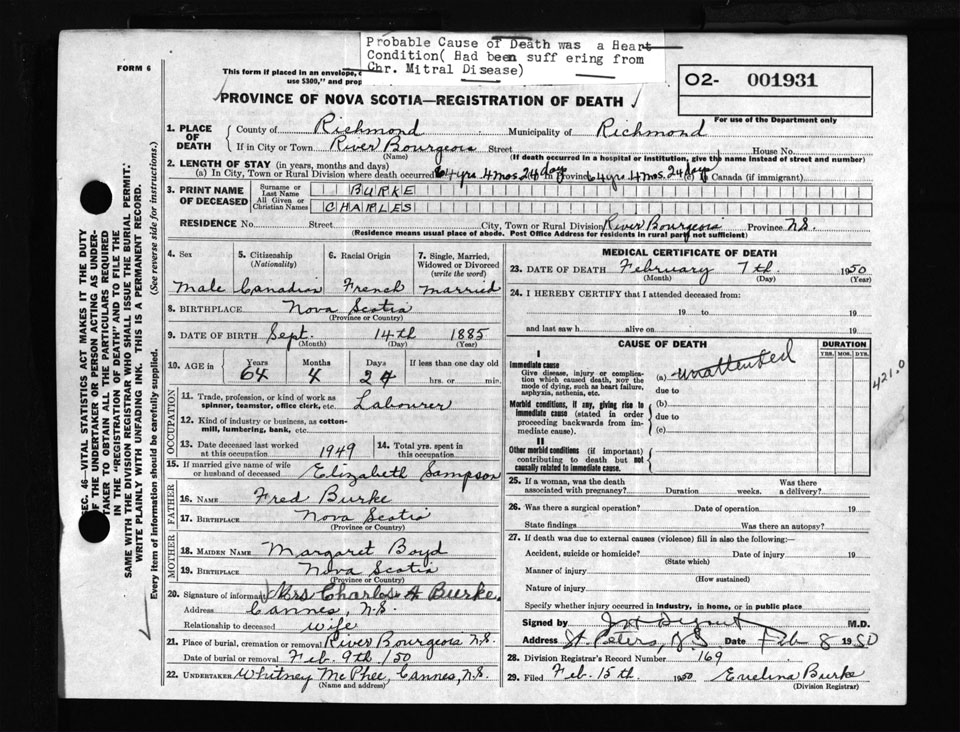 Probable Cause of Death was a Heart
Condition( Had been suff ering from
Chr. Mitral Disease)
FORM 6
This form if placed in an envelope,
use $300," and prop
O2- 001931
PROVINCE OF NOVA SCOTIA—REGISTRATION OF DEATH
For use of the Department only
1. PLACE OF DEATH
County of Richmond Municipality of Richmond
If in City or Town River Bourgeois Street House No.
(Name) (If death occurred in a hospital or institution, give the name instead of street and number)
2. LENGTH OF STAY (in years, months and days)
(a) In City, Town or Rural Division where death occurred 64 yrs 4 mos. 24 days In Province 64 yrs. 4 mos. 24 days (c) If Canada (if immigrant)
3. PRINT NAME OF DECEASED
Surname or Last Name BURKE
All Given or Christian Names CHARLES
RESIDENCE No. Street City, Town or Rural Division River Bourgeois Province N.S.
(Residence means usual place of abode. Post Office Address for residents in rural parts not sufficient)
4. Sex 5. Citizenship (Nationality) 6. Racial Origin 7. Single, Married, Widowed or Divorced (write the word)
Male Canadian French Married
8. BIRTHPLACE Nova Scotia
(Province or Country)
9. DATE OF BIRTH Sept. 14th 1885
(Month) (Day) (Year)
10. AGE in Years Months Days If less than one day old
64 4 24 hrs. or min.
OCCUPATION
11. Trade, profession, or kind of work as spinner, teamster, office clerk, etc. Labourer
12. Kind of industry or business, as cotton-mill, lumbering, bank, etc.
13. Date deceased last worked at this occupation 1949
14. Total yrs. spent in this occupation
15. If married give name of wife or husband of deceased Elizabeth Sampson
FATHER
16. NAME Fred Burke
17. BIRTHPLACE Nova Scotia
(Province or Country)
MOTHER
18. MAIDEN NAME Margaret Boyd
19. BIRTHPLACE Nova Scotia
(Province or Country)
20. Signature of informant Mrs Charles A Burke.
Address Cannes, N.S.
Relationship to deceased wife
21. Place of burial, cremation or removal River Bourgeois N.S.
Date of burial or removal Feb. 9th / 50
22. UNDERTAKER Whitney McPhee, Cannes, N.S.
(Name and address)
MEDICAL CERTIFICATE OF DEATH
23. DATE OF DEATH February 7th 1950
(Month) (Day) (Year)
24. I HEREBY CERTIFY that I attended deceased from:
19 to 19
and last saw h alive on 19
CAUSE OF DEATH DURATION
YRS. MOS. DYS.
I
Immediate cause
Give disease, injury or complication which caused death, not the mode of dying, such as heart failure, asphyxia, asthenia, etc.
(a) unattended
due to
Morbid conditions, if any, giving rise to immediate cause (stated in order proceeding backwards from immediate cause).
(b)
due to
(c)
II
Other morbid conditions (if important) contributing to death but not causally related to immediate cause.
421.0
25. If a woman, was the death associated with pregnancy? Duration weeks. Was there a delivery?
26. Was there a surgical operation? Date of operation 19
State findings Was there an autopsy?
27. If death was due to external causes (violence) fill in also the following:—
Accident, suicide or homicide? Date of injury 19
(State which)
Manner of injury
(How sustained)
Nature of injury
Specify whether injury occurred in industry, in home, or in public place
Signed by M.D.
Address St. Peters, N.S Date Feb 8 1950
28. Division Registrar's Record Number 169
29. Filed Feb. 15th 1950 Evelina Burke
(Division Registrar)
SEC. 46—VITAL STATISTICS ACT MAKES IT THE DUTY
OF THE UNDERTAKER OR PERSON ACTING AS UNDER-
TAKER TO OBTAIN ALL THE PARTICULARS REQUIRED
IN THE "REGISTRATION OF DEATH" AND TO FILE THE
SAME WITH THE DIVISION REGISTRAR WHO SHALL ISSUE THE BURIAL PERMIT.
WRITE PLAINLY WITH UNFADING INK. THIS IS A PERMANENT RECORD.
Every item of information should be carefully supplied. (See reverse side for instructions.)